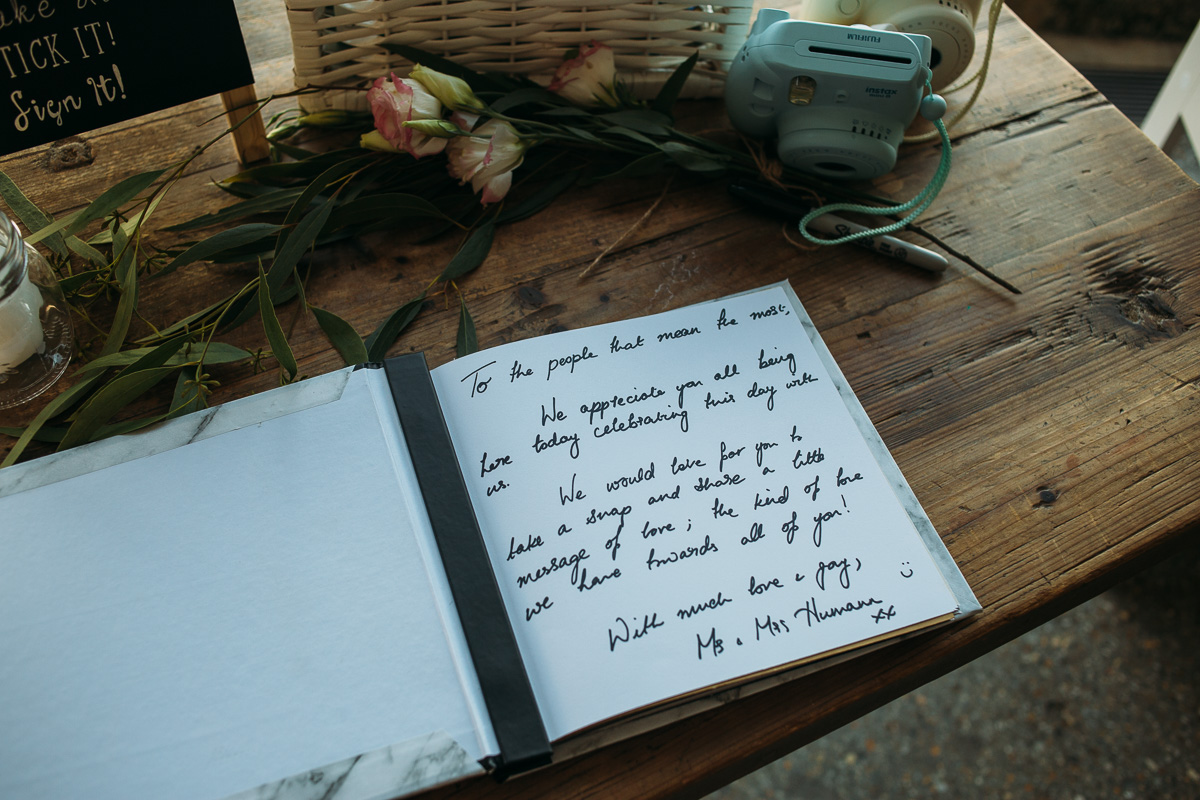 TICK IT!
Sign It!
FUJIFILM
instax
To the people that mean the most,
We appreciate you all being
here today celebrating this day with
us.
We would love for you to
take a snap and share a little
message of love; the kind of love
we have towards all of you!
With much love & joy,
Ms & Mrs Humann
xx